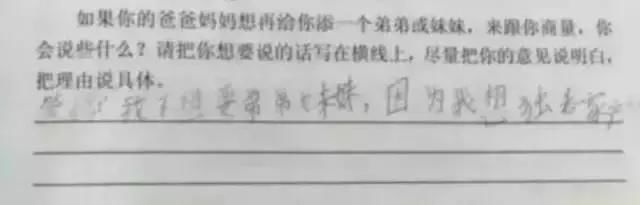 如果你的爸爸妈妈想再给你添一个弟弟或妹妹，来跟你商量，你
会说些什么？请把你想要说的话写在横线上，尽量把你的意见说明白，
把理由说具体。
我不想要弟弟或妹妹，因为我想独占家产